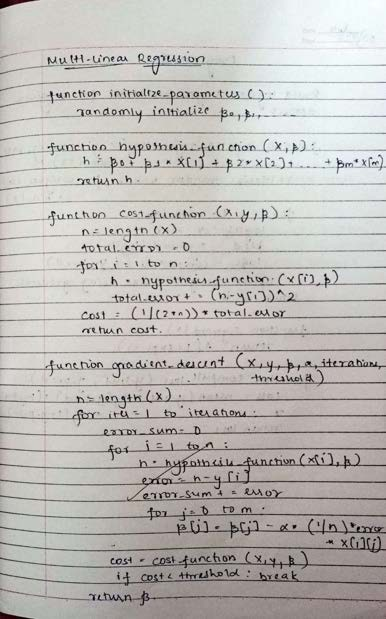 Multi-Linear Regression
function initialize_parameters ( ) :
randomly initialize β0, β1, .....
function hypothesis_function (X, β) :
h = β0 + β1 * X[1] + β2 * X[2] + ... + βm * X[m]
return h.
function cost_function (X, y, β) :
n = length (X)
total_error = 0
for i = 1 to n :
h = hypothesis_function (X[i], β)
total_error + = (h - y[i])^2
cost = (1/(2*n)) * total_error
return cost.
function gradient_descent (X, y, β, α, iterations,
threshold)
n = length (X)
for iter = 1 to iterations :
error_sum = 0
for i = 1 to n :
h = hypothesis_function (X[i], β)
error = h - y[i]
error_sum + = error
for j = 0 to m :
β[j] = β[j] - α * (1/n) * error
* X[i][j]
cost = cost_function (X, y, β)
if cost < threshold : break
return β.